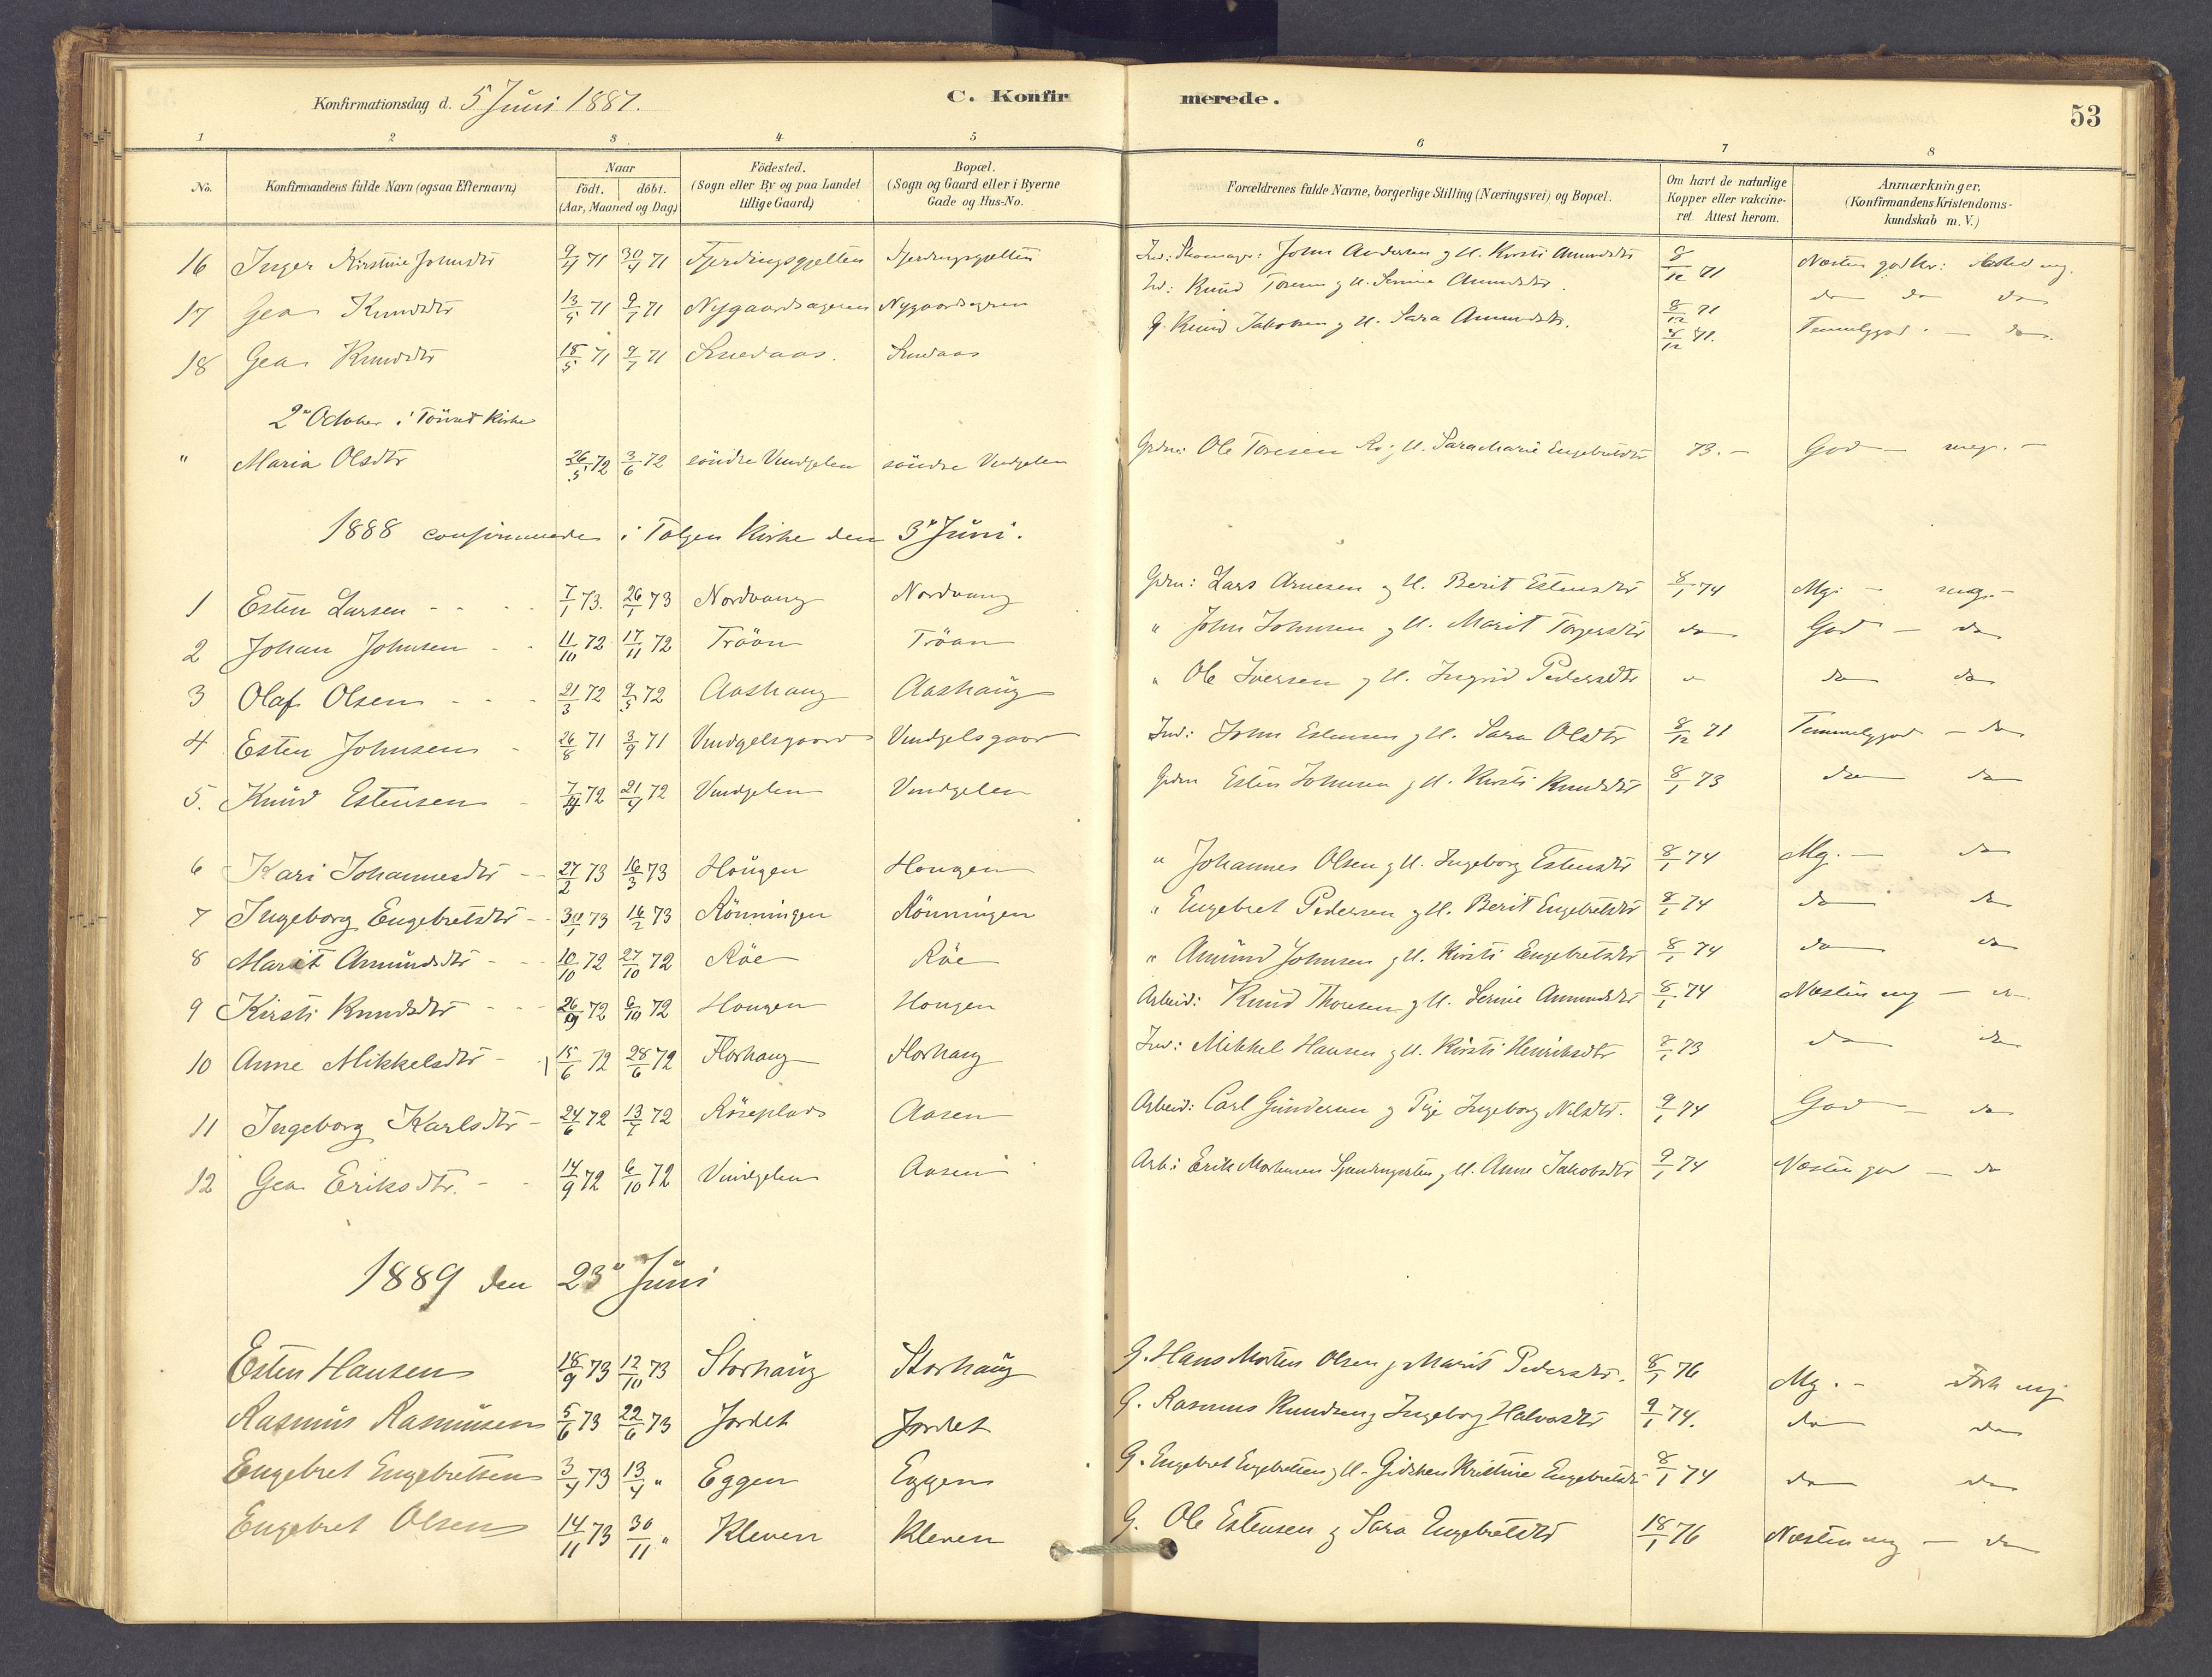 Konfirmationsdag d. 5 Juni 1887. C. Konfirmerede. 53
1 2 3 4 5 6 7 8
No. Konfirmandens fulde Navn (ogsaa Efternavn) Naar födt. döbt. (Aar, Maaned og Dag) Födested. (Sogn eller By og paa Landet tillige Gaard) Bopæl. (Sogn og Gaard eller i Byerne Gade og Hus-No. Forældrenes fulde Navne, borgerlige Stilling (Næringsvei) og Bopæl. Om havt de naturlige Kopper eller vakcineret. Attest herom. Anmærkninger, (Konfirmandens Kristendomskundskab m. V.)
16 Inger Kirstine Johnsdtr 9/4 71 30/4 71 Fjerdingsgjelten Fjerdingsgjelten John Andersen og H. Kirsti Amundsdtr 8/12 71
17 Gea Knudsdtr 13/5 71 9/7 71 Nygaardsageren Nygaardsageren Knud Toresen og H. Serine Amundsdtr. 8/12 71 do do do
18 Gea Knudsdtr 18/5 71 9/7 71 Smedaas. Smedaas G. Knud Jakobsen og H. Sara Amundsdtr. 8/12 71. Temmelig god. — do.
2" October i Tönset Kirke
" Maria Olsdtr 26/5 72 3/6 72 söndre Vingelen söndre Vingelen Grdm: Ole Toresen og H. Sara Marie Engebretsdtr 73. — God — meg. —
1888 confirmerede i Tolgen Kirke den 3" Juni.
1 Esten Larsen 7/1 73. 26/1 73 Nordvang Nordvang Grdm: Lars Arnesen og H. Berit Estensdtr 8/1 74 Mg. — meg. —
2 Johan Johnsen 11/10 72 17/11 72 Tröan Tröan " John Johnsen og H. Marit Torgersdtr do God — do
3 Olaf Olsen 21/3 72 9/5 72 Aashaug Aashaug " Ole Iversen og H. Ingrid Pedersdtr " do do
4 Esten Johnsen 26/8 71 3/9 71 Vingelsgaard Vingelsgaard Ind: John Estensen og H. Sara Olsdtr 8/12 71 Temmelig god — do
5. Knud Estensen 72 21/4 72 Vingelen Vingelen Grdm Esten Johnsen og H. Kirsti Knudsdtr 8/1 73 do do
6 Kari Johannesdtr 27/2 73 16/3 73 Hougen Hougen " Johannes Olsen og H. Ingeborg Estensdtr 8/1 74 Mg. — do
7 Ingeborg Engebretsdtr 30/1 73 16/2 73 Rönningen Rönningen " Engebret Pedersen og H. Berit Engebretsdtr 8/1 74 do do
8 Marit Amundsdtr 10/10 72 27/10 72 Röe Röe " Amund Johnsen og H. Kirsti Engebretsdtr 8/1 74 do do
9 Kirsti Knudsdtr 26/9 72 6/10 72 Hougen Hougen Arbeid: Knud Thoresen og H. Serine Amundsdtr 8/1 74 Næsten mg — do
10 Anne Mikkelsdtr 15/6 72 28/6 72 Florhaug Florhaug Ind: Mikkel Hansen og H. Kirsti Henriksdtr 8/1 73 do do
11 Ingeborg Karlsdtr 24/6 72 13/7 72 Röseplads Aasen Arbeid: Carl Gundersen og Pige Ingeborg Nilsdtr. 9/1 74 God — do
12 Gea Eriksdtr. 14/9 72 6/10 72 Vingelen Aasen Arb: Erik Mortensen og H. Anne Jakobsdtr 9/1 74 Næsten god — do
1889 den 23" Juni
Esten Hansen 18/9 73 12/10 73 Storhaug Storhaug G. Hans Morten Olsen og Marit Pedersdtr. 8/1 76 Mg. — Forh mg
Rasmus Rasmussen 5/6 73 22/6 73 Jordet Jordet G. Rasmus Knudsen og Ingeborg Halvorsdtr 9/1 74. do do
Engebret Engebretsen 3/4 73 13/4 " Eggen Eggen G. Engebret Engebretsen og H. Gidsken Kristine Engebretsdtr 8/1 74 do do
Engebret Olsen 14/11 73 30/11 " Kleven Kleven G. Ole Estensen og Sara Engebretsdtr 18/1 76 Næsten mg — do